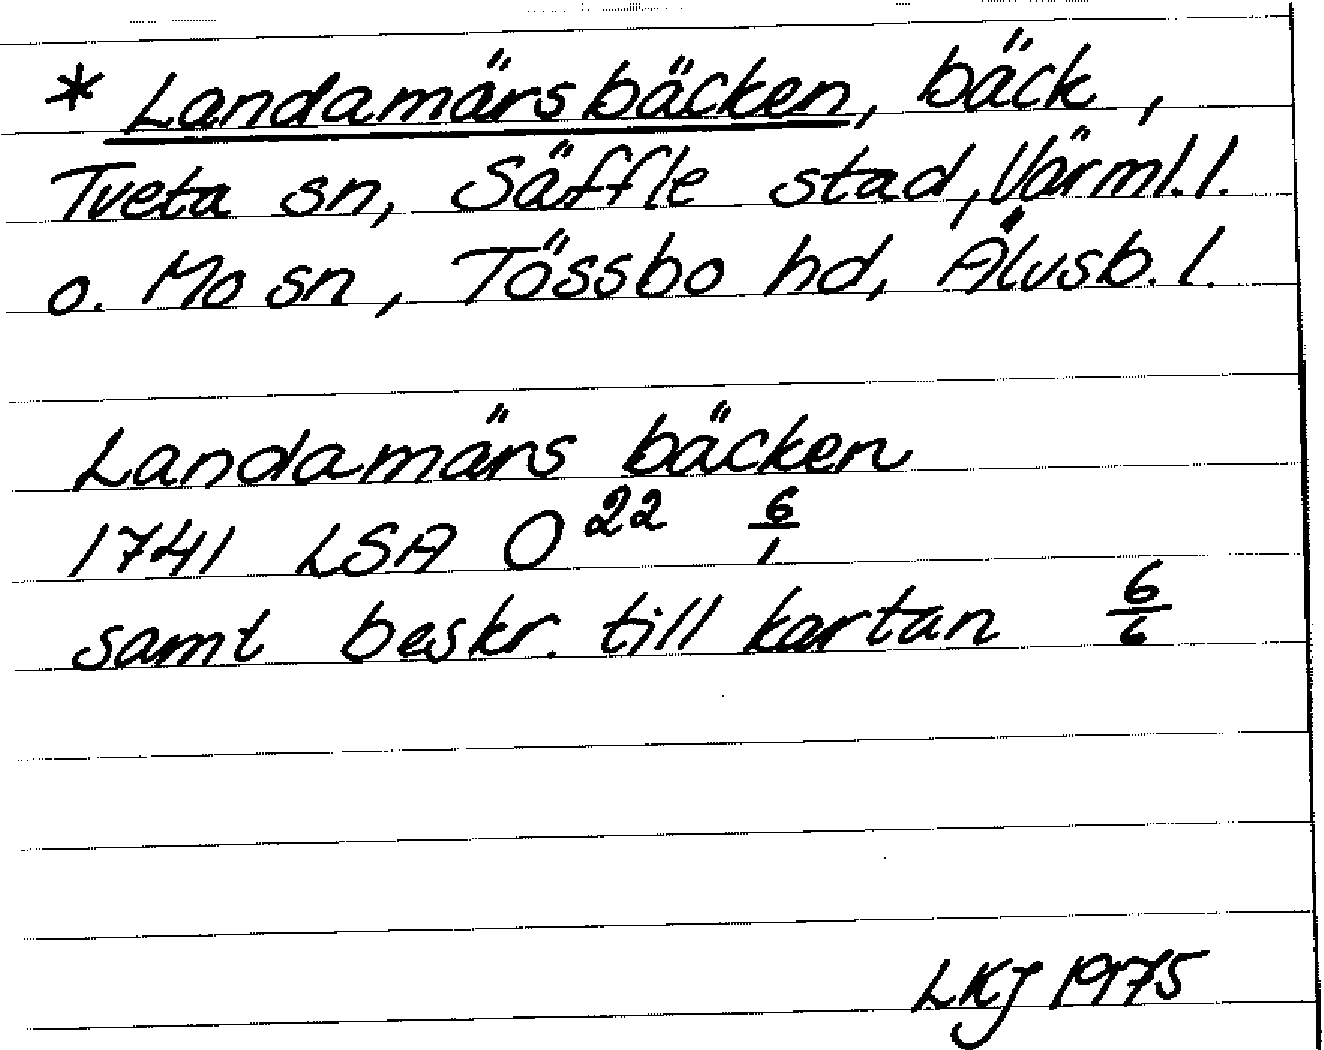 * Landamärsbäcken, bäck,
Tveta sn, Säffle stad, Värml. l.
o. Mo sn, Tössbo hd, Älvsb. l.
Landamärs bäcken
1741 LSA O 22 6/1
samt beskr. till kartan 6/6
LKJ 1975